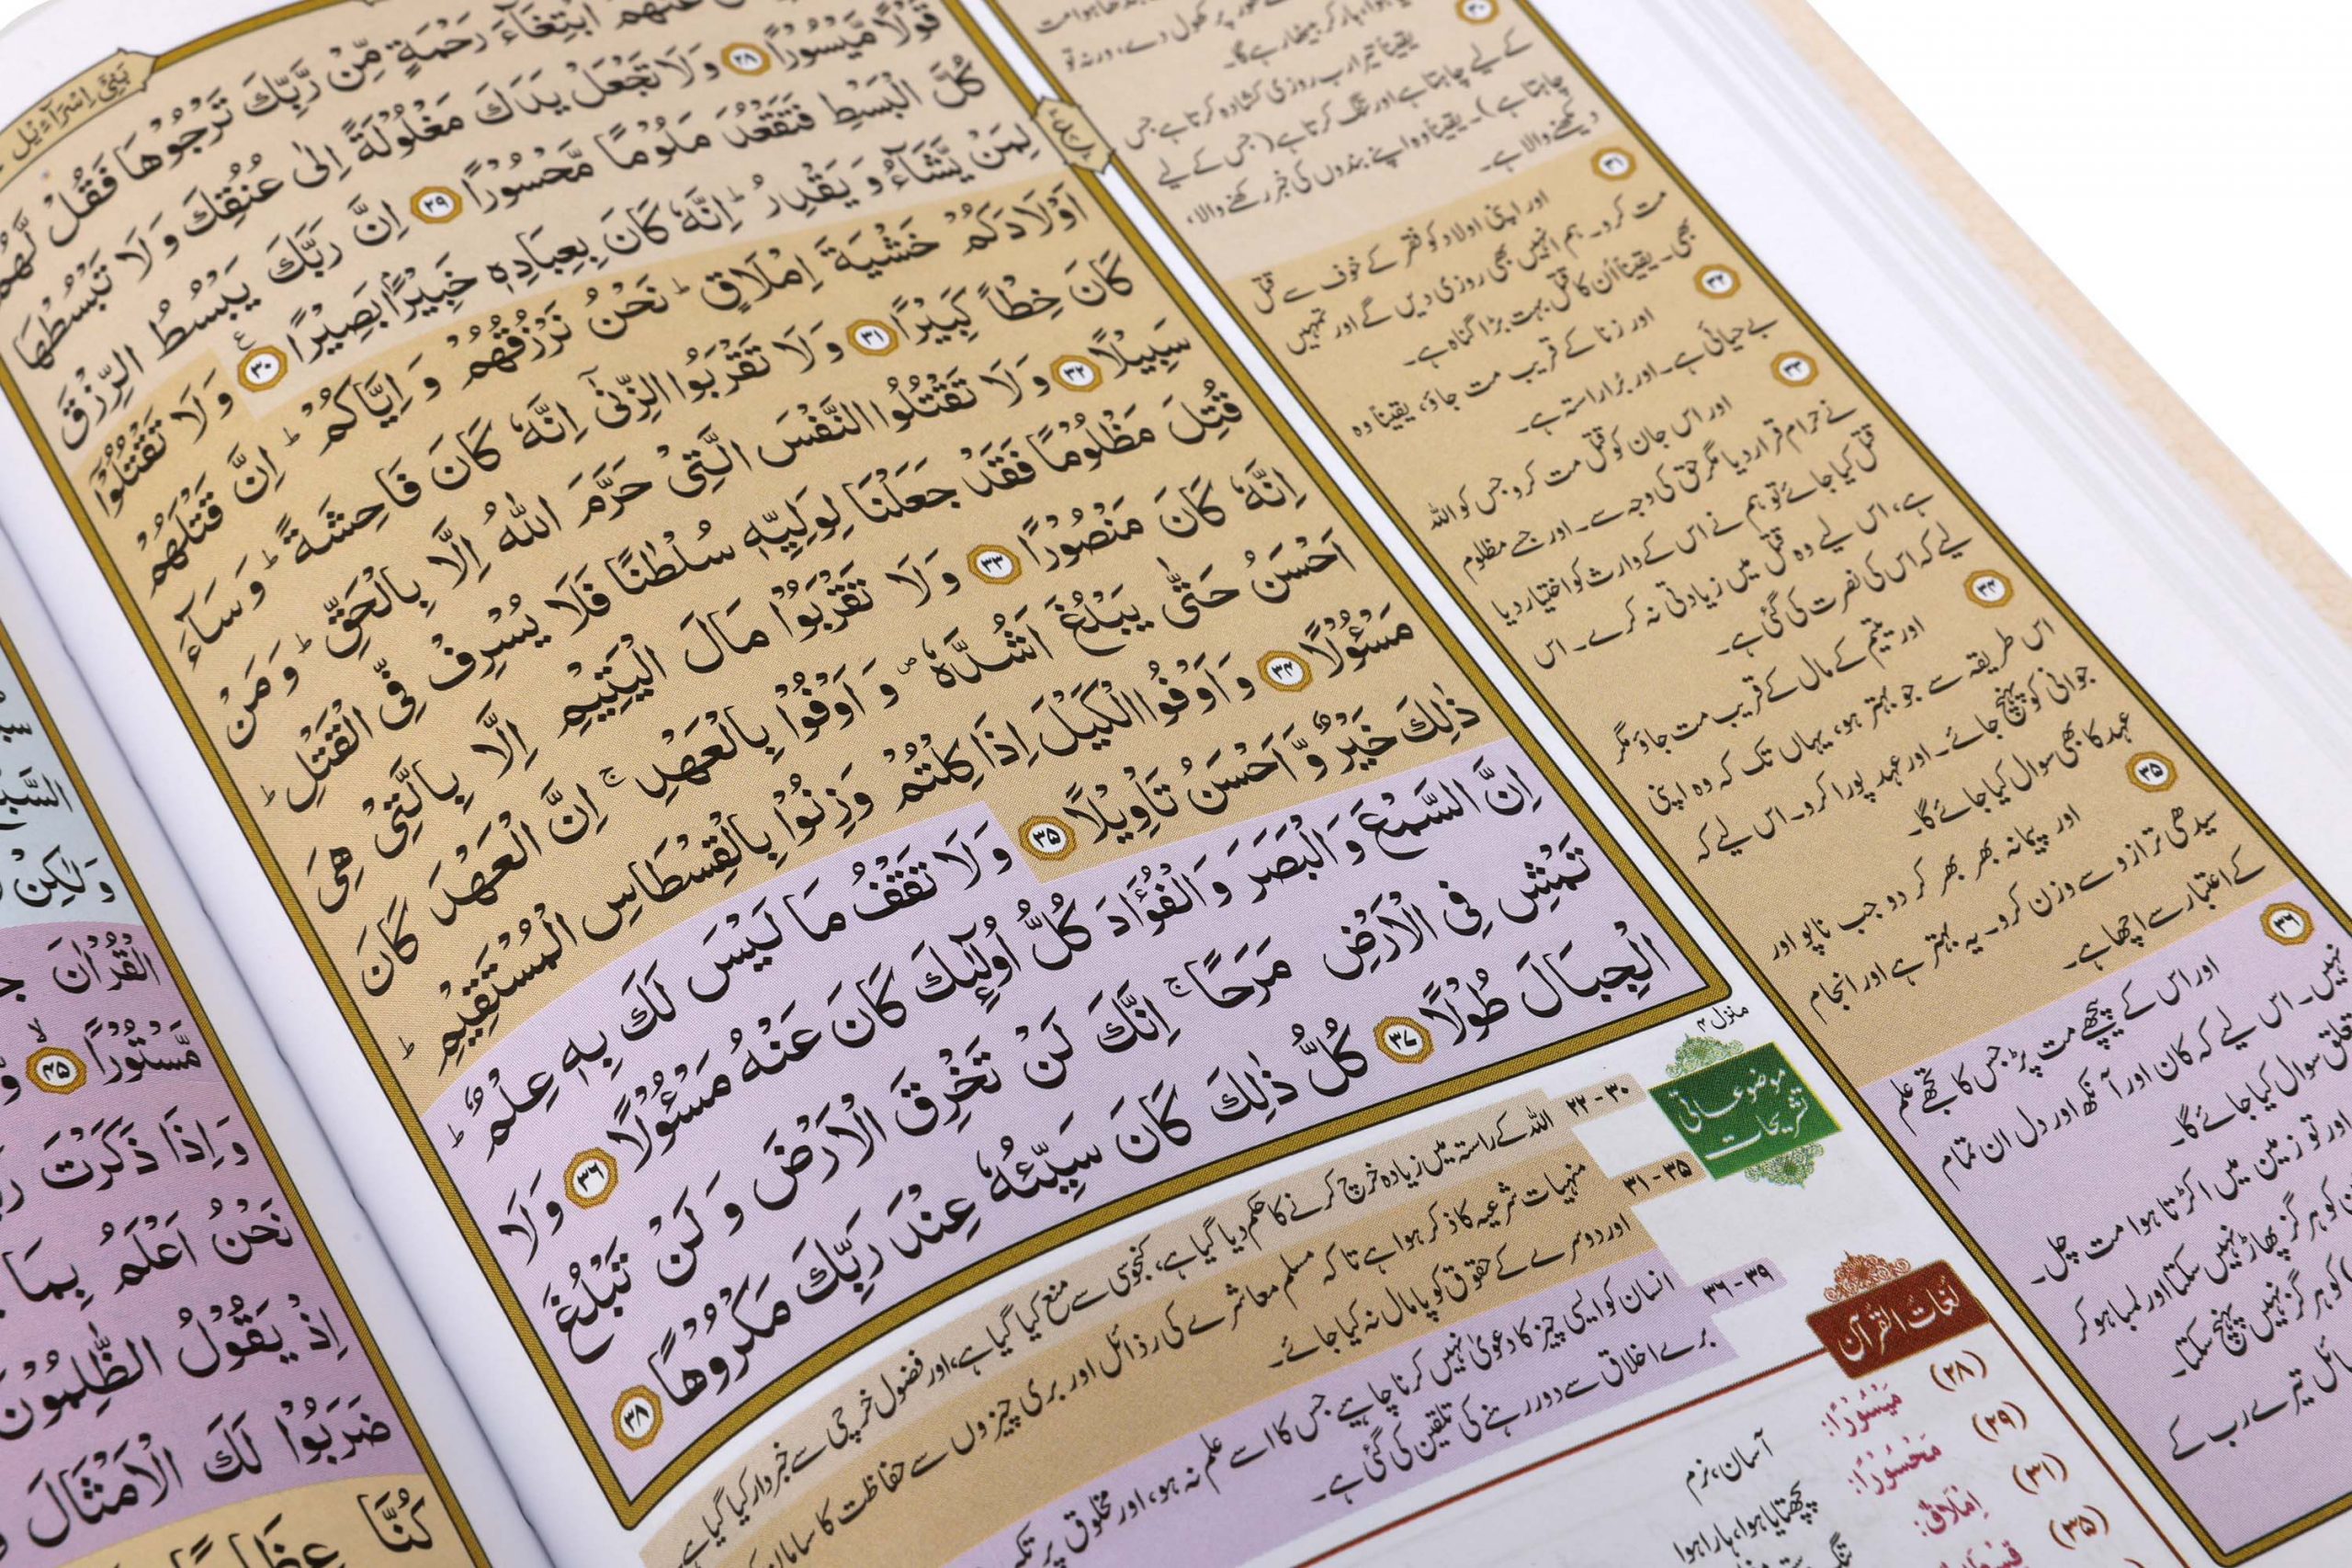 بَنِیْۤ اِسْرَآءِیْل
عَنْهُمُ ابْتِغَآءَ رَحْمَةٍ مِّنْ رَّبِّكَ تَرْجُوْهَا فَقُلْ لَّهُمْ
قَوْلًا مَّیْسُوْرًا ۲۸ وَ لَا تَجْعَلْ یَدَكَ مَغْلُوْلَةً اِلٰى عُنُقِكَ وَ لَا تَبْسُطْهَا
كُلَّ الْبَسْطِ فَتَقْعُدَ مَلُوْمًا مَّحْسُوْرًا ۲۹ اِنَّ رَبَّكَ یَبْسُطُ الرِّزْقَ
لِمَنْ یَّشَآءُ وَ یَقْدِرُ ؕ اِنَّهٗ كَانَ بِعِبَادِهٖ خَبِیْرًۢا بَصِیْرًا ۳۰ ع وَ لَا تَقْتُلُوْۤا
اَوْلَادَكُمْ خَشْیَةَ اِمْلَاقٍ ؕ نَحْنُ نَرْزُقُهُمْ وَ اِیَّاكُمْ ؕ اِنَّ قَتْلَهُمْ
كَانَ خِطْاً كَبِیْرًا ۳۱ وَ لَا تَقْرَبُوا الزِّنٰۤى اِنَّهٗ كَانَ فَاحِشَةً ؕ وَ سَآءَ
سَبِیْلًا ۳۲ وَ لَا تَقْتُلُوا النَّفْسَ الَّتِیْ حَرَّمَ اللّٰهُ اِلَّا بِالْحَقِّ ؕ وَ مَنْ
قُتِلَ مَظْلُوْمًا فَقَدْ جَعَلْنَا لِوَلِیِّهٖ سُلْطٰنًا فَلَا یُسْرِفْ فِّی الْقَتْلِ ؕ
اِنَّهٗ كَانَ مَنْصُوْرًا ۳۳ وَ لَا تَقْرَبُوْا مَالَ الْیَتِیْمِ اِلَّا بِالَّتِیْ هِیَ
اَحْسَنُ حَتّٰى یَبْلُغَ اَشُدَّهٗ ۪ وَ اَوْفُوْا بِالْعَهْدِ ۚ اِنَّ الْعَهْدَ كَانَ
مَسْـُٔوْلًا ۳۴ وَ اَوْفُوا الْكَیْلَ اِذَا كِلْتُمْ وَزِنُوْا بِالْقِسْطَاسِ الْمُسْتَقِیْمِ ؕ
ذٰلِكَ خَیْرٌ وَّ اَحْسَنُ تَاْوِیْلًا ۳۵ وَ لَا تَقْفُ مَا لَیْسَ لَكَ بِهٖ عِلْمٌ ؕ
اِنَّ السَّمْعَ وَ الْبَصَرَ وَ الْفُؤَادَ كُلُّ اُولٰٓىِٕكَ كَانَ عَنْهُ مَسْـُٔوْلًا ۳۶ وَ لَا
تَمْشِ فِی الْاَرْضِ مَرَحًا ۚ اِنَّكَ لَنْ تَخْرِقَ الْاَرْضَ وَ لَنْ تَبْلُغَ
الْجِبَالَ طُوْلًا ۳۷ كُلُّ ذٰلِكَ كَانَ سَیِّئُهٗ عِنْدَ رَبِّكَ مَكْرُوْهًا ۳۸
منزل ۴
۳۰
یقیناً تیرا رب روزی کشادہ کرتا ہے جس
کے لیے چاہتا ہے اور تنگ کرتا ہے (جس کے لیے
چاہتا ہے)۔ یقیناً وہ اپنے بندوں کی خبر رکھنے والا،
دیکھنے والا ہے۔
۳۱
اور اپنی اولاد کو فقر کے خوف سے قتل
مت کرو۔ ہم انہیں بھی روزی دیں گے اور تمہیں
بھی۔ یقیناً اُن کا قتل بہت بڑا گناہ ہے۔
۳۲
اور زنا کے قریب مت جاؤ، یقیناً وہ
بے حیائی ہے۔ اور بُرا راستہ ہے۔
۳۳
اور اس جان کو قتل مت کرو جس کو اللہ
نے حرام قرار دیا مگر حق کی وجہ سے۔ اور جسے مظلوم
قتل کیا جائے تو ہم نے اس کے وارث کو اختیار دیا
ہے، اس لیے وہ قتل میں زیادتی نہ کرے۔ اس
لیے کہ اس کی نصرت کی گئی ہے۔
۳۴
اور یتیم کے مال کے قریب مت جاؤ مگر
اس طریقہ سے جو بہتر ہو، یہاں تک کہ وہ اپنی
جوانی کو پہنچ جائے۔ اور عہد پورا کرو۔ اس لیے کہ
عہد کا بھی سوال کیا جائے گا۔
۳۵
اور پیمانہ بھر بھر کر دو جب ناپو اور
سیدھی ترازو سے وزن کرو۔ یہ بہتر ہے اور انجام
کے اعتبار سے اچھا ہے۔
۳۶
اور اس کے پیچھے مت پڑ جس کا تجھے علم
نہیں۔ اس لیے کہ کان اور آنکھ اور دل ان تمام
سوال کیا جائے گا۔
اور تو زمین میں اکڑتا ہوا مت چل۔
کو ہرگز پھاڑ نہیں سکتا اور لمبا ہو کر
کو ہرگز نہیں پہنچ سکتا۔
تیرے رب کے
موضوعاتی
تشریحات
۲۲ - ۳۰ اللہ کے راستہ میں زیادہ خرچ کرنے کا حکم دیا گیا ہے، کنجوسی سے منع کیا گیا ہے، اور فضول خرچی سے خبردار کیا گیا ہے۔
۳۱ - ۳۵ منہیات شرعیہ کا ذکر ہوا ہے تاکہ مسلم معاشرے کی رذائل اور بری چیزوں سے حفاظت کا سامان
اور دوسرے کے حقوق کو پامال نہ کیا جائے۔
۳۶ - ۳۹ انسان کو ایسی چیز کا دعویٰ نہیں کرنا چاہیے جس کا اسے علم نہ ہو، اور مخلوق پر تکبر
برے اخلاق سے دور رہنے کی تلقین کی گئی ہے۔
لُغَاتُ القُرآن
(۲۸) مَیْسُوْرًا: آسان، نرم
(۲۹) مَحْسُوْرًا: پچھتایا ہوا، ہارا ہوا
(۳۱) اِمْلَاقٍ:
(۳۵)
وَلٰكِنْ
الْقُرْاٰنَ
مَّسْتُوْرًا ۴۵
وَ اِذَا ذَكَرْتَ
نَحْنُ اَعْلَمُ بِمَا
اِذْ یَقُوْلُ الظّٰلِمُوْنَ
ضَرَبُوْا لَكَ الْاَمْثَالَ
كُنَّا